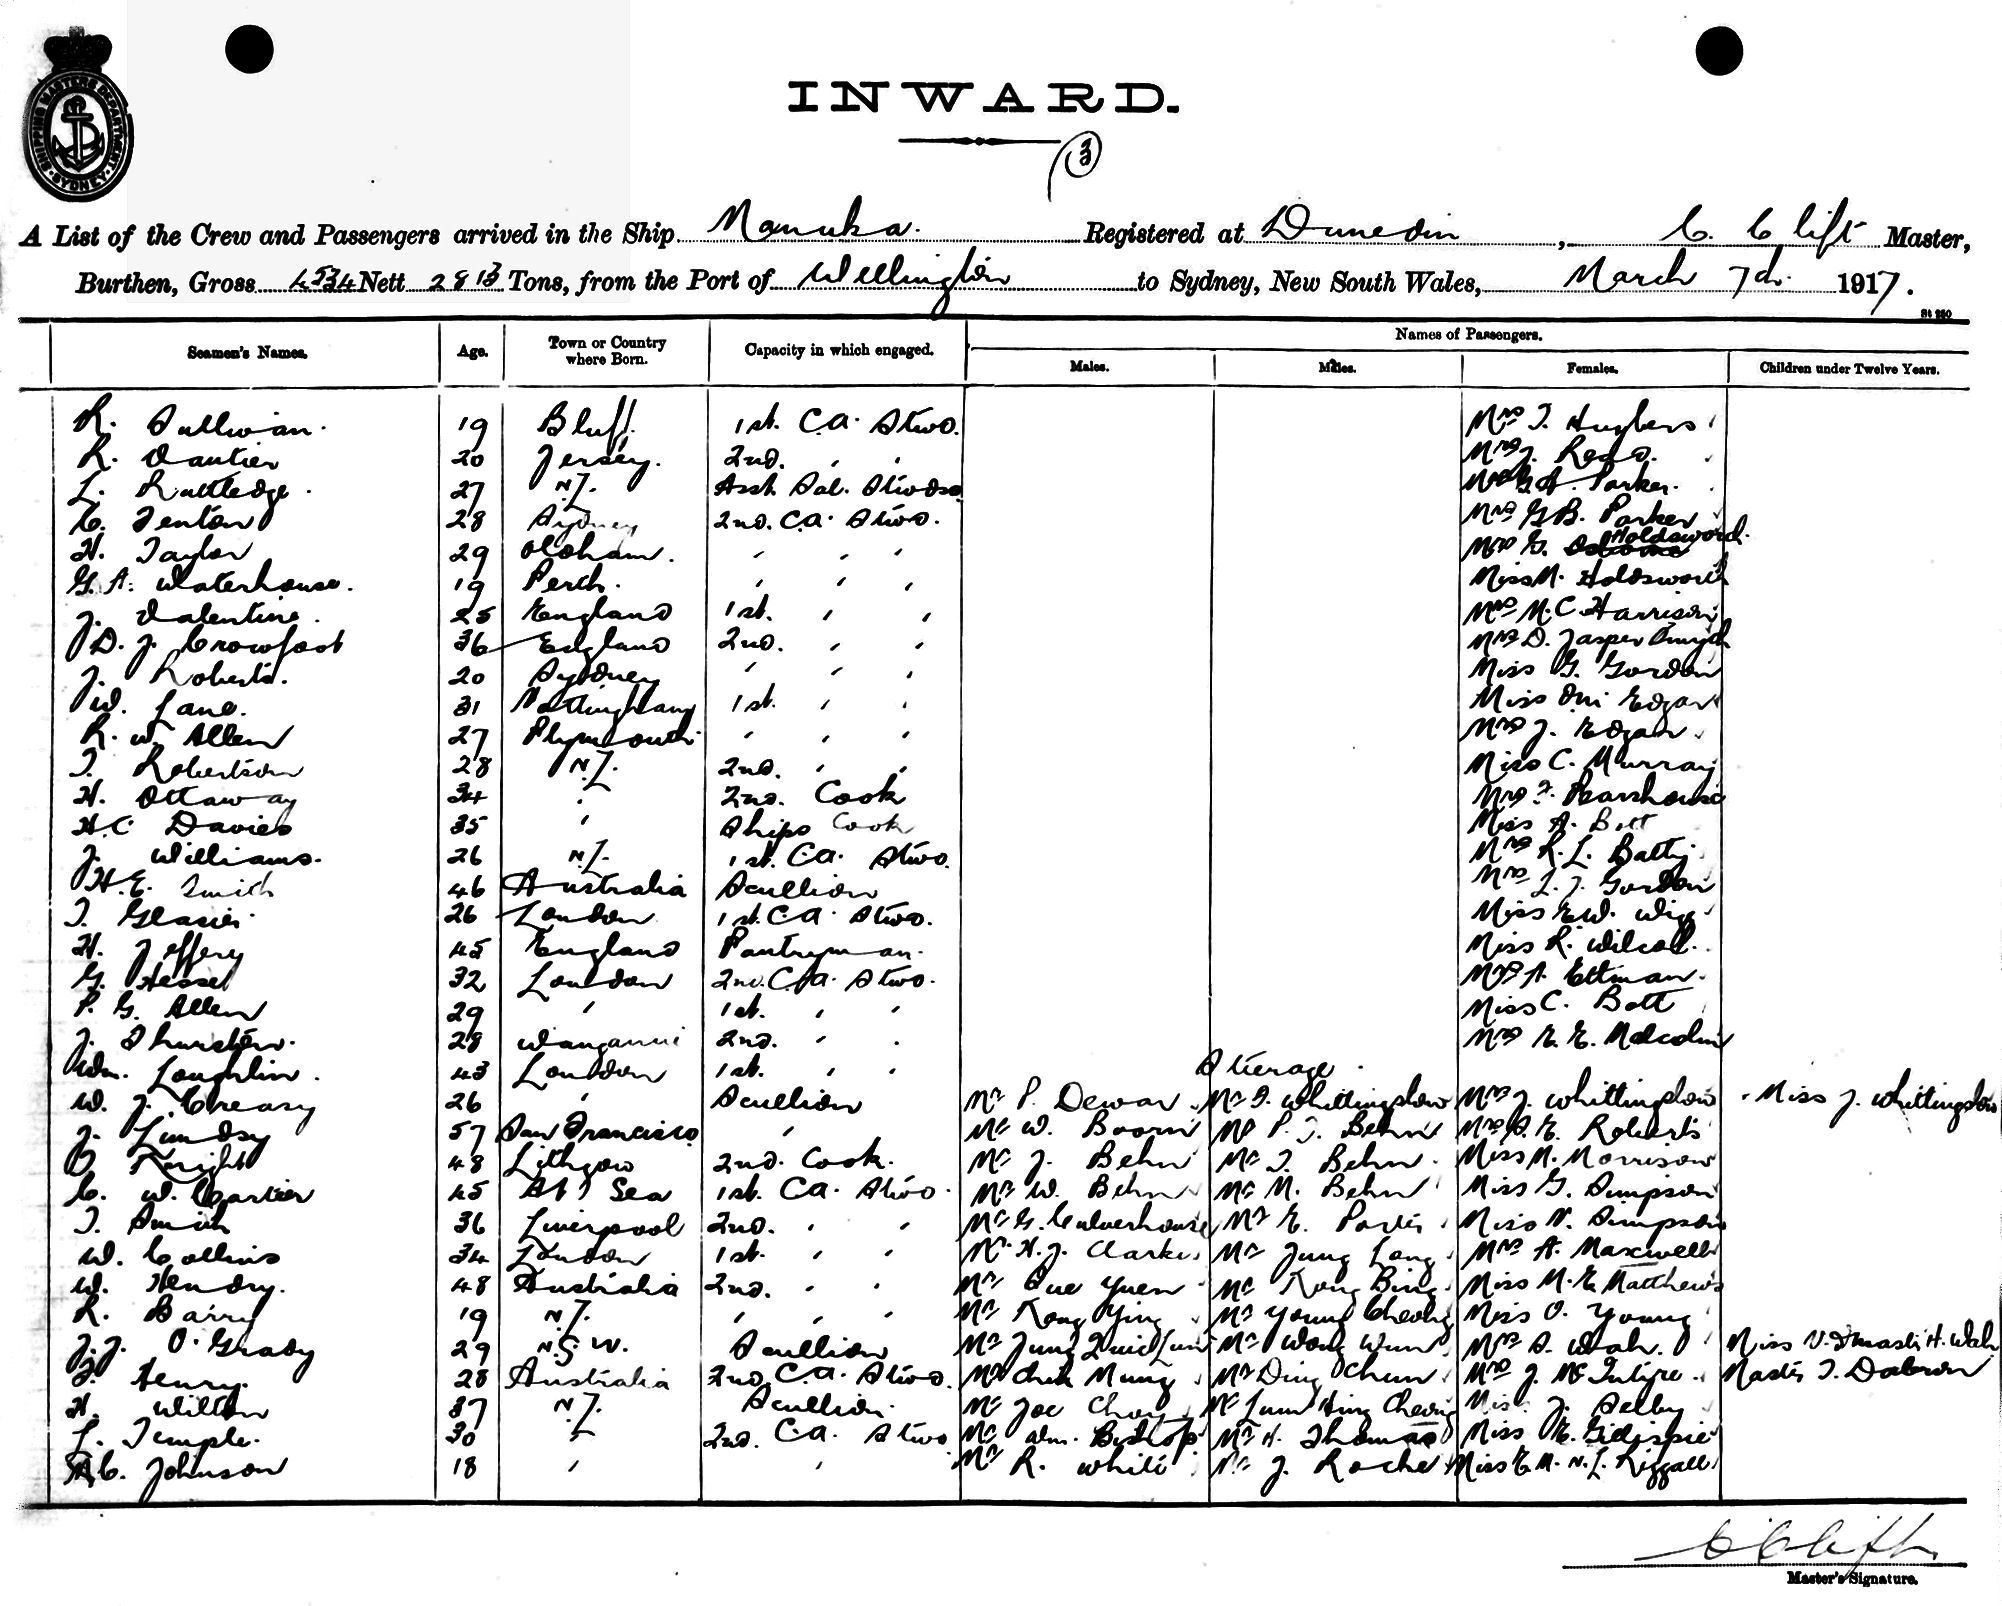 SHIPPING MASTERS DEPARTMENT
SYDNEY
INWARD.
3
A List of the Crew and Passengers arrived in the Ship Manuka. Registered at Dunedin, C. Clift Master,
Burthen, Gross 4534 Nett 2813 Tons, from the Port of Wellington to Sydney, New South Wales, March 7th. 1917.
St 280
Seamen's Names. Age. Town or Country where Born. Capacity in which engaged. Names of Passengers.
Males. Males. Females. Children under Twelve Years.
R. Sullivan. 19 Bluff. 1st. C.A. Stwd. Mrs T. Huybers
R. Vautier 20 Jersey. 2nd. " " Mrs J. Reas.
L. Rutledge. 27 N.Z. Asst. Sal. Stwdss Parker.
C. Fenton 28 Sydney 2nd. C.A. Stwd. Mrs G.B. Parker
H. Taylor 29 Oldham. " " " Mrs G. Holdsword.
G.A. Waterhouse. 19 Perth. " " " Miss M. Holdsworth
J. Valentine. 25 England 1st. " " Mrs M.C. Harrison
D.J. Crowfoot 36 England 2nd. " " Mrs D. Jasper Smyth
J. Roberts. 20 Sydney " " " Miss G. Gordon
W. Lane. 31 Nottingham 1st. " " Miss Edgar
R. W. Allen 27 Plymouth " " " Mrs J. Edgar.
T. Robertson 28 N.Z. 2nd. " " Miss C. Murray
H. Ottaway 34 " 2nd. Cook Mrs F. Pearshouse
H.C. Davies 35 " Ships Cook Miss A. Bott
J. Williams. 26 N.Z. 1st. C.A. Stwd. Mrs R. L. Batty
H.E. Smith 46 Australia Scullion Mrs L. J. Gordon
T. Glasier 26 London 1st. C.A. Stwd. Miss E.W. Wigg
H. Jeffery 45 England Pantryman. Miss R. Wilcox.
G. Hessel 32 London 2nd. C.A. Stwd. Mrs A. Ettman.
P. G. Allen 29 " 1st. " " Miss C. Bott
J. Thurston. 28 Wanganui 2nd. " " Mrs E. E. Malcolm
Wm. Loughlin. 43 London 1st. " " Steerage.
W. J. Creasy 26 " Scullion Mr P. Dewar Mr T. Whittingslow Mrs J. Whittingslow Miss J. Whittingslow
J. Lundsy 57 San Francisco " Mr W. Boorn Mr P. T. Behn Mrs A. E. Roberts
Knight 48 Lithgow 2nd. Cook. Mr J. Behn Mr T. Behn Miss M. Morrison
C. W. Cartier 45 At Sea 1st. C.A. Stwd. Mr W. Behn Mr M. Behn Miss G. Simpson
T. Smith 36 Liverpool 2nd. " " Mr G. Culverhouse Mr E. Porter Miss N. Simpson
W. Collins 34 London 1st. " " Mr H. J. Clarke Mr Jung Lang Mrs A. Maxwell
W. Hendry. 48 Australia 2nd. " " Mr Que Yuen Mr Kong Bing Miss M. E. Matthews
R. Barry 19 N.Z. " " " Mr Kong Ying Mr Young Cheong Miss O. Young
J.J. O'Grady 29 N.S.W. Scullion Mr Jung Quie Lum Mr Wong Wun Mrs S. Wah. Miss V. & Mast. H. Wah
Henry. 28 Australia 2nd. C.A. Stwd. Mr Chik Mung Mr Ding Chun Mrs J. McIntyre. Master T. Dobson
H. Wilton 37 N.Z. Scullion. Mr Joe Choy Mr Lum Hing Cheong Miss J. Selby
L. Temple. 30 " 2nd. C.A. Stwd. Mr Wm. Bishop Mr H. Thomas Miss E. Gillispie
C. Johnson 18 " " Mr R. White Mr J. Roche Miss E. M. N. L. Riggall
C Clift
Master's Signature.